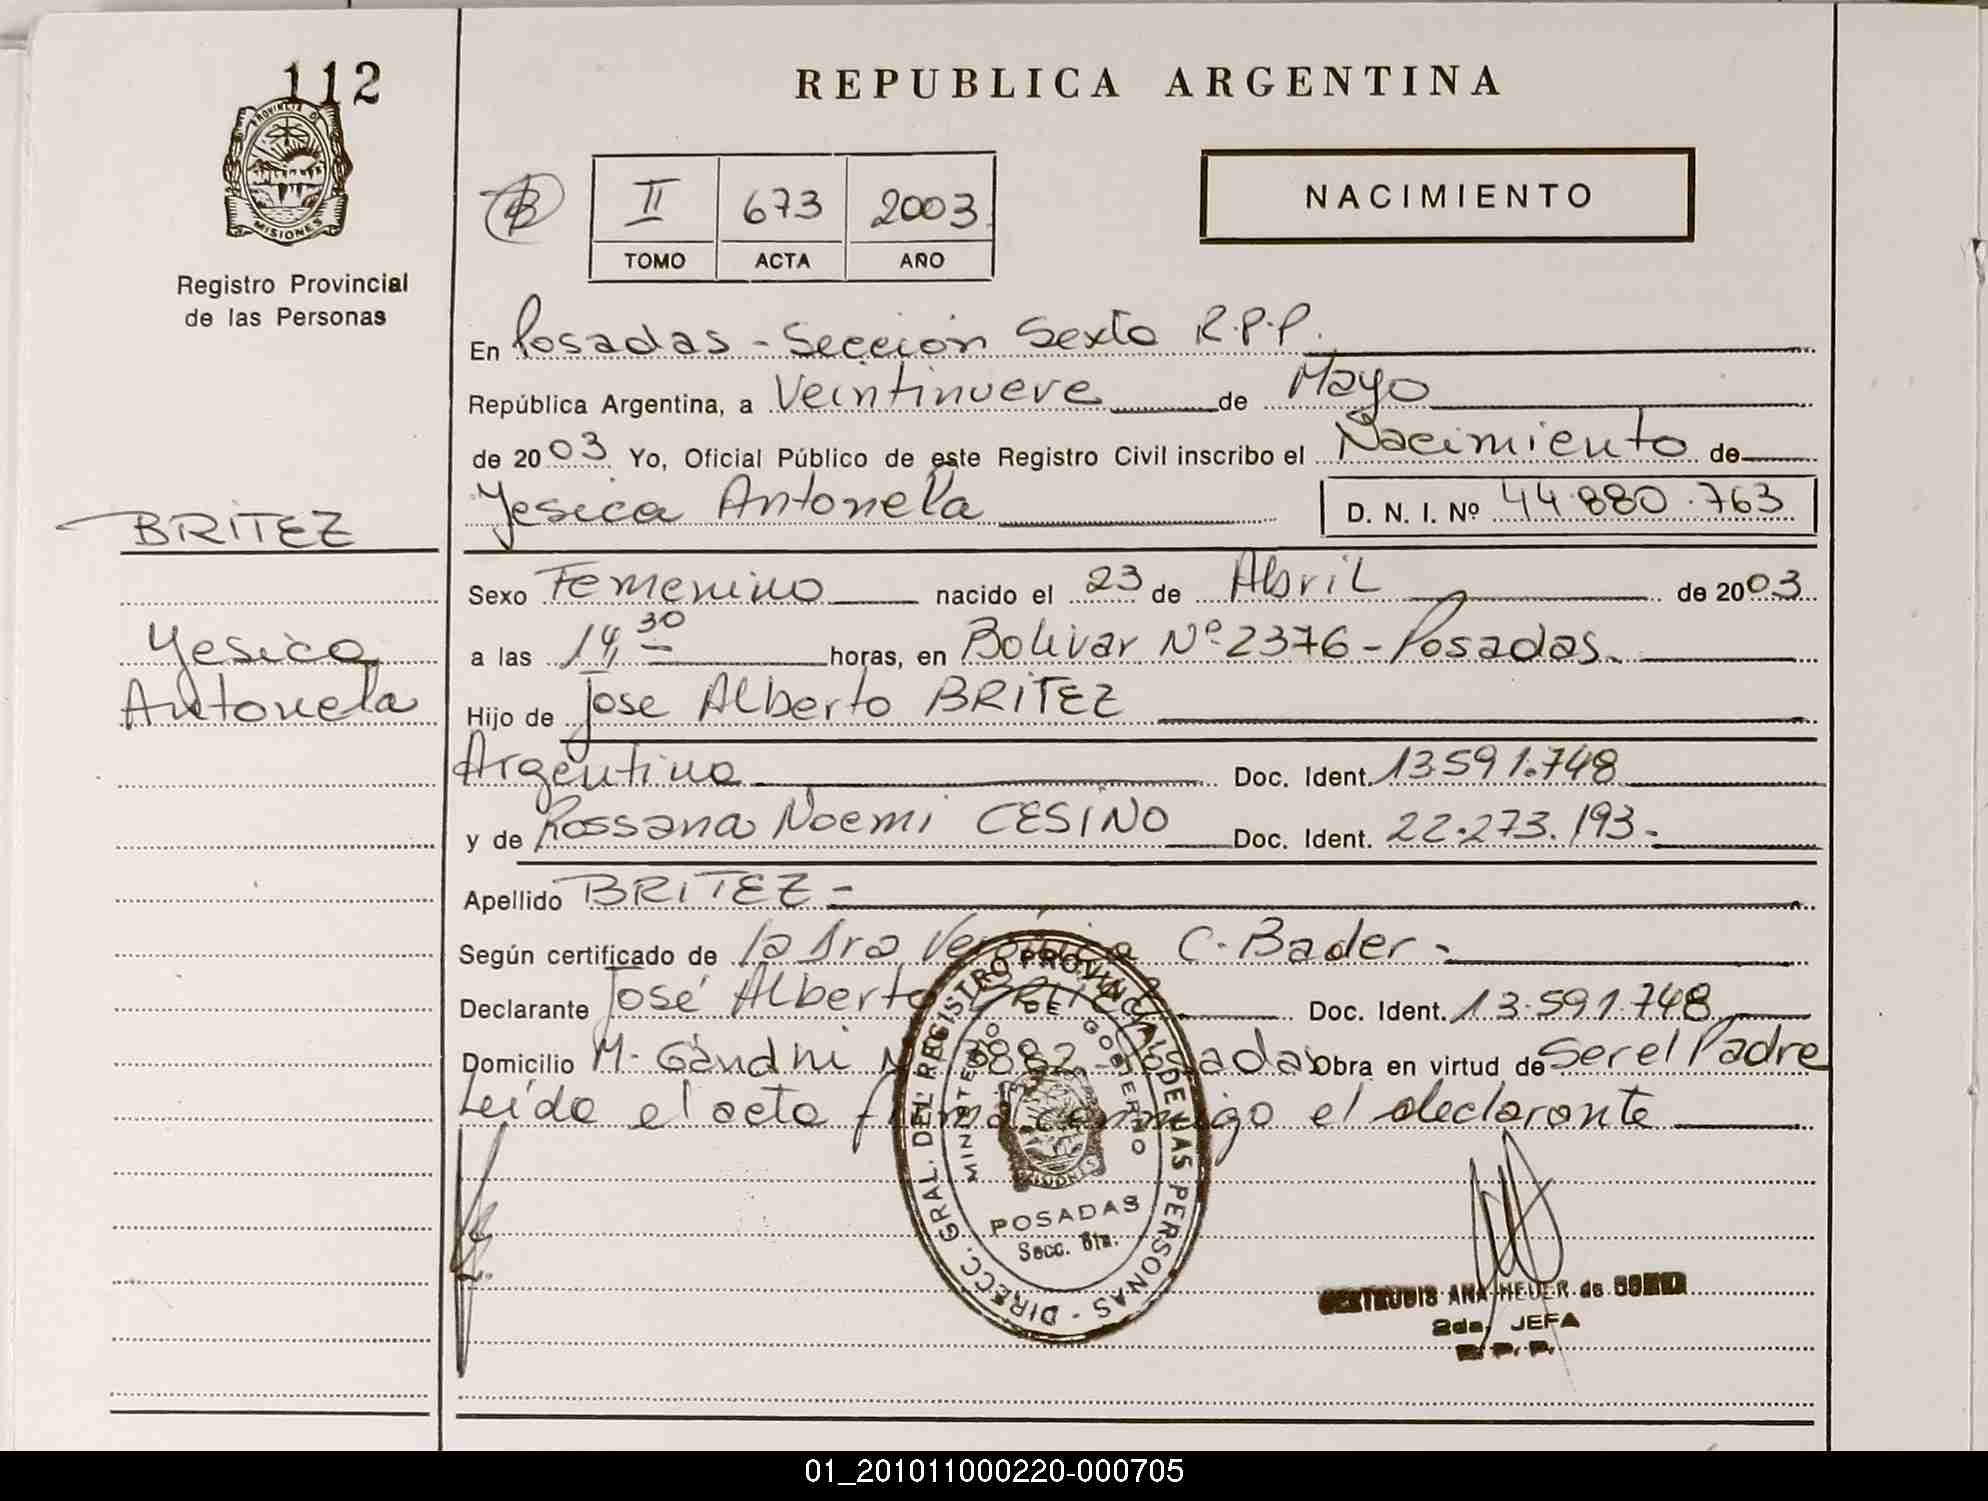 112
REPUBLICA ARGENTINA
PROVINCIA DE MISIONES
Registro Provincial
de las Personas
II 673 2003
TOMO ACTA AÑO
NACIMIENTO
En Posadas - Sección Sexta R.P.P.
República Argentina, a Veintinueve de Mayo
de 2003 Yo, Oficial Público de este Registro Civil inscribo el Nacimiento de
Yesica Antonela D. N. I. Nº 44.880.763
BRITEZ
Yesica
Antonela
Sexo Femenino nacido el 23 de Abril de 2003
a las 14,30 horas, en Bolivar Nº 2376 - Posadas.
Hijo de Jose Alberto BRITEZ
Argentino Doc. Ident. 13.591.748
y de Rossana Noemi CESINO Doc. Ident. 22.273.193.-
Apellido BRITEZ -
Según certificado de la Dra Verónica C. Bader -
Declarante José Alberto BRITEZ Doc. Ident. 13.591.748
Domicilio M. Gandhi Nº 3882 - Posadas Obra en virtud de Ser el Padre
Leída el acta firma conmigo el declarante
DIRECC. GRAL. DEL REGISTRO PROVINCIAL DE LAS PERSONAS
MINISTERIO DE GOBIERNO
MISIONES
POSADAS
Secc. 6ta.
GERTRUDIS ANA HEUER de
2da. JEFA
R. P. P.
01_201011000220-000705